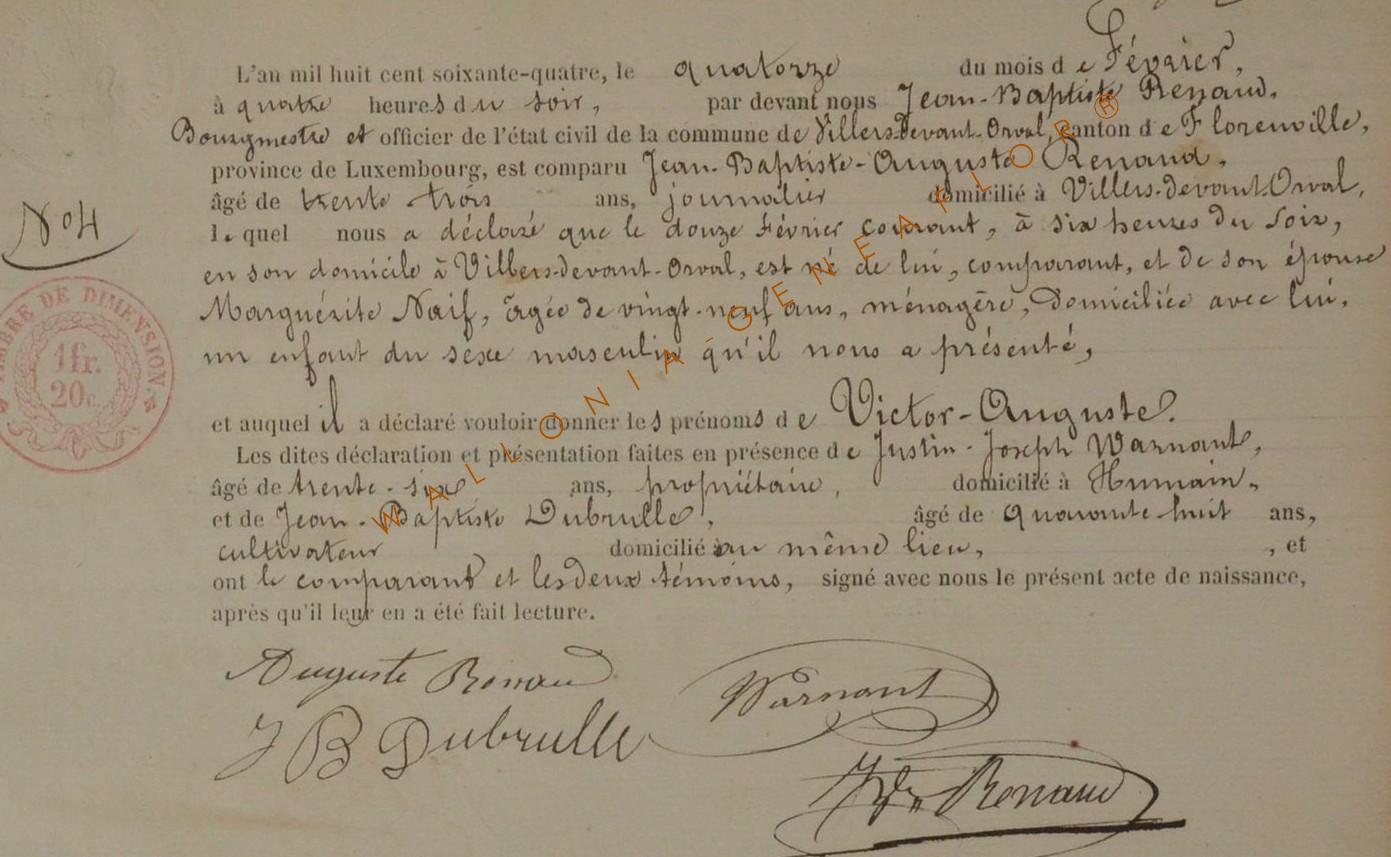 L'an mil huit cent soixante-quatre, le quatorze du mois de Février,
à quatre heures du soir, par devant nous Jean-Baptiste Renaud,
Bourgmestre et officier de l'état civil de la commune de Villers-devant-Orval, canton de Florenville,
province de Luxembourg, est comparu Jean-Baptiste-Auguste Renaud,
âgé de trente-trois ans, journalier domicilié à Villers-devant-Orval,
lequel nous a déclaré que le douze Février courant, à six heures du soir,
en son domicile à Villers-devant-Orval, est né de lui, comparant, et de son épouse
Marguérite Naif, âgée de vingt-neuf ans, ménagère, domiciliée avec lui,
un enfant du sexe masculin qu'il nous a présenté,
et auquel il a déclaré vouloir donner les prénoms de Victor-Auguste.
Les dites déclaration et présentation faites en présence de Justin-Joseph Warnant,
âgé de trente-six ans, propriétaire, domicilié à Humain,
et de Jean-Baptiste Dubrulle, âgé de quarante huit ans,
cultivateur domicilié au même lieu, , et
ont le comparant et les deux témoins, signé avec nous le présent acte de naissance,
après qu'il leur en a été fait lecture.
Auguste Renaud
Warnant
J B Dubrulle
Renaud
No 4
TIMBRE DE DIMENSION
1fr.
20c.
WALLONIA GENEAFLOR®